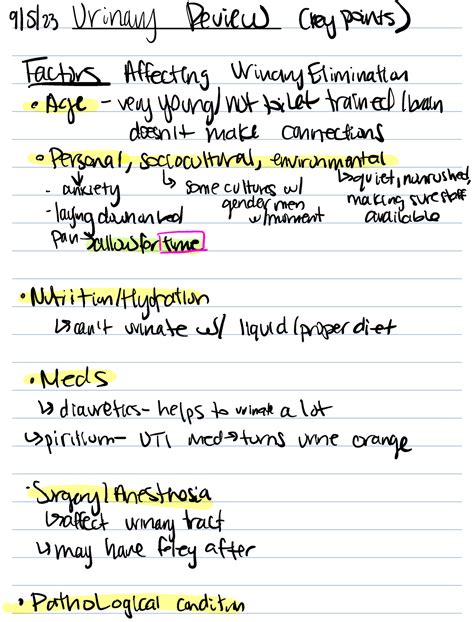 9/5/23 Urinary Review (key points)
Factors Affecting Urinary Elimination
• Age - very young/not toilet trained/brain
doesn't make connections
• Personal, sociocultural, environmental
- anxiety ↳ some cultures w/ ↳ quiet, nonrushed,
gender men making sure staff
- laying down on bed w/ moment available
pan → allow for time
• Nutrition/Hydration
↳ can't urinate w/ liquid/proper diet
• Meds
↳ diauretics - helps to urinate a lot
↳ - UTI med → turns urine orange
• Surgery/Anesthesia
↳ affect urinary tract
↳ may have foley after
• Pathological condition